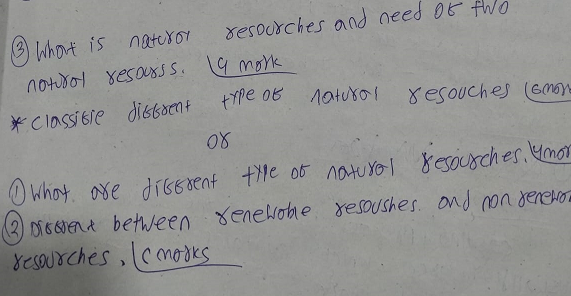 ③ What is naturol resourches and need of two
noturol resourss. 4 mork
* classifie diffrent type of naturol resouches 6mor
or
① What are different type of natural resourches. 4mor
② Different between renewohle resoushes. and non renewo
resourches. 6 morks